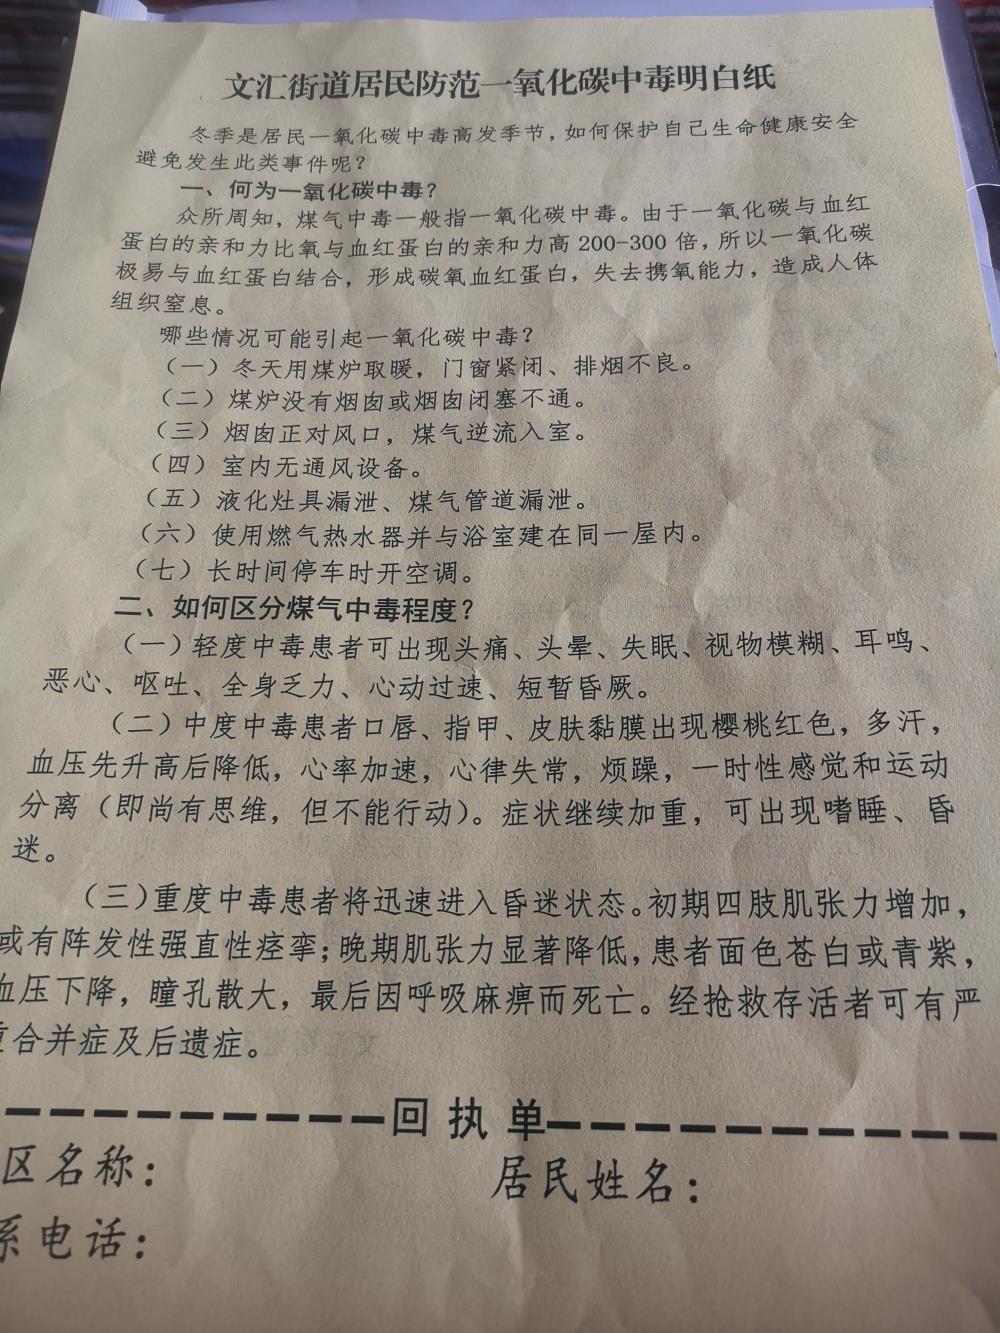 文汇街道居民防范一氧化碳中毒明白纸
冬季是居民一氧化碳中毒高发季节，如何保护自己生命健康安全
避免发生此类事件呢？
一、何为一氧化碳中毒？
众所周知，煤气中毒一般指一氧化碳中毒。由于一氧化碳与血红
蛋白的亲和力比氧与血红蛋白的亲和力高 200-300 倍，所以一氧化碳
极易与血红蛋白结合，形成碳氧血红蛋白，失去携氧能力，造成人体
组织窒息。
哪些情况可能引起一氧化碳中毒？
（一）冬天用煤炉取暖，门窗紧闭、排烟不良。
（二）煤炉没有烟囱或烟囱闭塞不通。
（三）烟囱正对风口，煤气逆流入室。
（四）室内无通风设备。
（五）液化灶具漏泄、煤气管道漏泄。
（六）使用燃气热水器并与浴室建在同一屋内。
（七）长时间停车时开空调。
二、如何区分煤气中毒程度？
（一）轻度中毒患者可出现头痛、头晕、失眠、视物模糊、耳鸣、
恶心、呕吐、全身乏力、心动过速、短暂昏厥。
（二）中度中毒患者口唇、指甲、皮肤黏膜出现樱桃红色，多汗，
血压先升高后降低，心率加速，心律失常，烦躁，一时性感觉和运动
分离（即尚有思维，但不能行动）。症状继续加重，可出现嗜睡、昏
迷。
（三）重度中毒患者将迅速进入昏迷状态。初期四肢肌张力增加，
或有阵发性强直性痉挛；晚期肌张力显著降低，患者面色苍白或青紫，
血压下降，瞳孔散大，最后因呼吸麻痹而死亡。经抢救存活者可有严
重合并症及后遗症。
回执单
区名称： 居民姓名：
系电话：